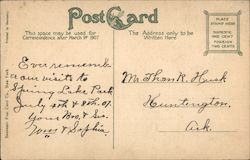 Post Card
This space may be used for
Correspondence after March 1st 1907
The Address only to be
Written Here
PLACE
STAMP HERE
DOMESTIC
ONE CENT
FOREIGN
TWO CENTS
Ever remember
our visits to
Spring Lake Park
July 4th & 8th, 07.
Your Bro, & Sis.
Tom & Sophia
Mr. Thos. R. Husk
Huntington,
Ark.